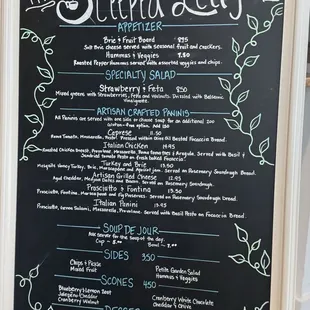 The Steeped Leaf
APPETIZER
Brie & Fruit Board 8.95
Soft Brie cheese served with seasonal fruit and crackers.
Hummus & Veggies 7.50
Roasted Pepper Hummus served with assorted veggies and chips.
SPECIALTY SALAD
Strawberry & Feta 8.50
Mixed greens with Strawberries, Feta and Walnuts. Drizzled with Balsamic
Vinaigrette.
ARTISAN CRAFTED PANINIS
All Paninis are served with one side or choose soup for an additional 2.00
Gluten-free option. Add 1.50
Caprese 11.50
Roma Tomato, Mozzarella, Pesto. Pressed within Olive Oil Basted Focaccia Bread.
Italian Chicken 13.95
Roasted Chicken Breast, Provolone, Mozzarella, Roma Tomatoes & Arugula. Served with Basil &
Sundried tomato Pesto on fresh baked Focaccia.
Turkey and Brie 13.95
Mesquite Honey Turkey, Brie, Marzapane and Apricot jam. Served on Rosemary Sourdough.
Artisan Grilled Cheese 12.95
Aged Cheddar, Bacon. Served on Rosemary Sourdough.
Prosciutto & Fontina 13.50
Prosciutto, Fontina, and Fig Preserves. Served on Rosemary Sourdough Bread.
Italian Panini 13.95
Prosciutto, Genoa Salami, Mozzarella, Provolone. Served with Basil Pesto on Focaccia Bread.
SOUP DE JOUR
Ask server for the soup of the day.
Cup - 5.00 Bowl - 7.00
SIDES 3.50
Chips & Pickle
Mixed Fruit
Petite Garden Salad
Hummus & Veggies
SCONES 4.50
Blueberry & Lemon Zest
Jalapeno Cheddar
Cranberry Walnut
Cranberry White Chocolate
Cheddar & Chive